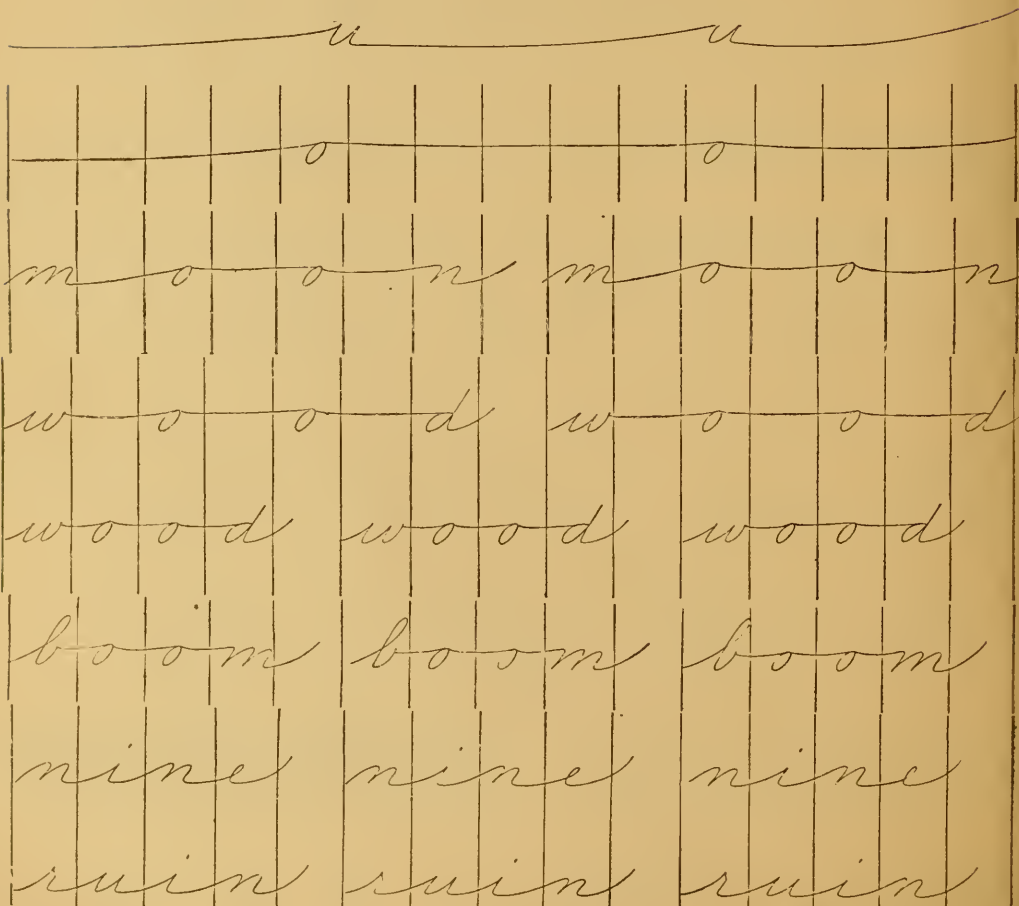 u u
o o
moon moon
wood wood
wood wood wood
boom boom boom
nine nine nine
ruin ruin ruin